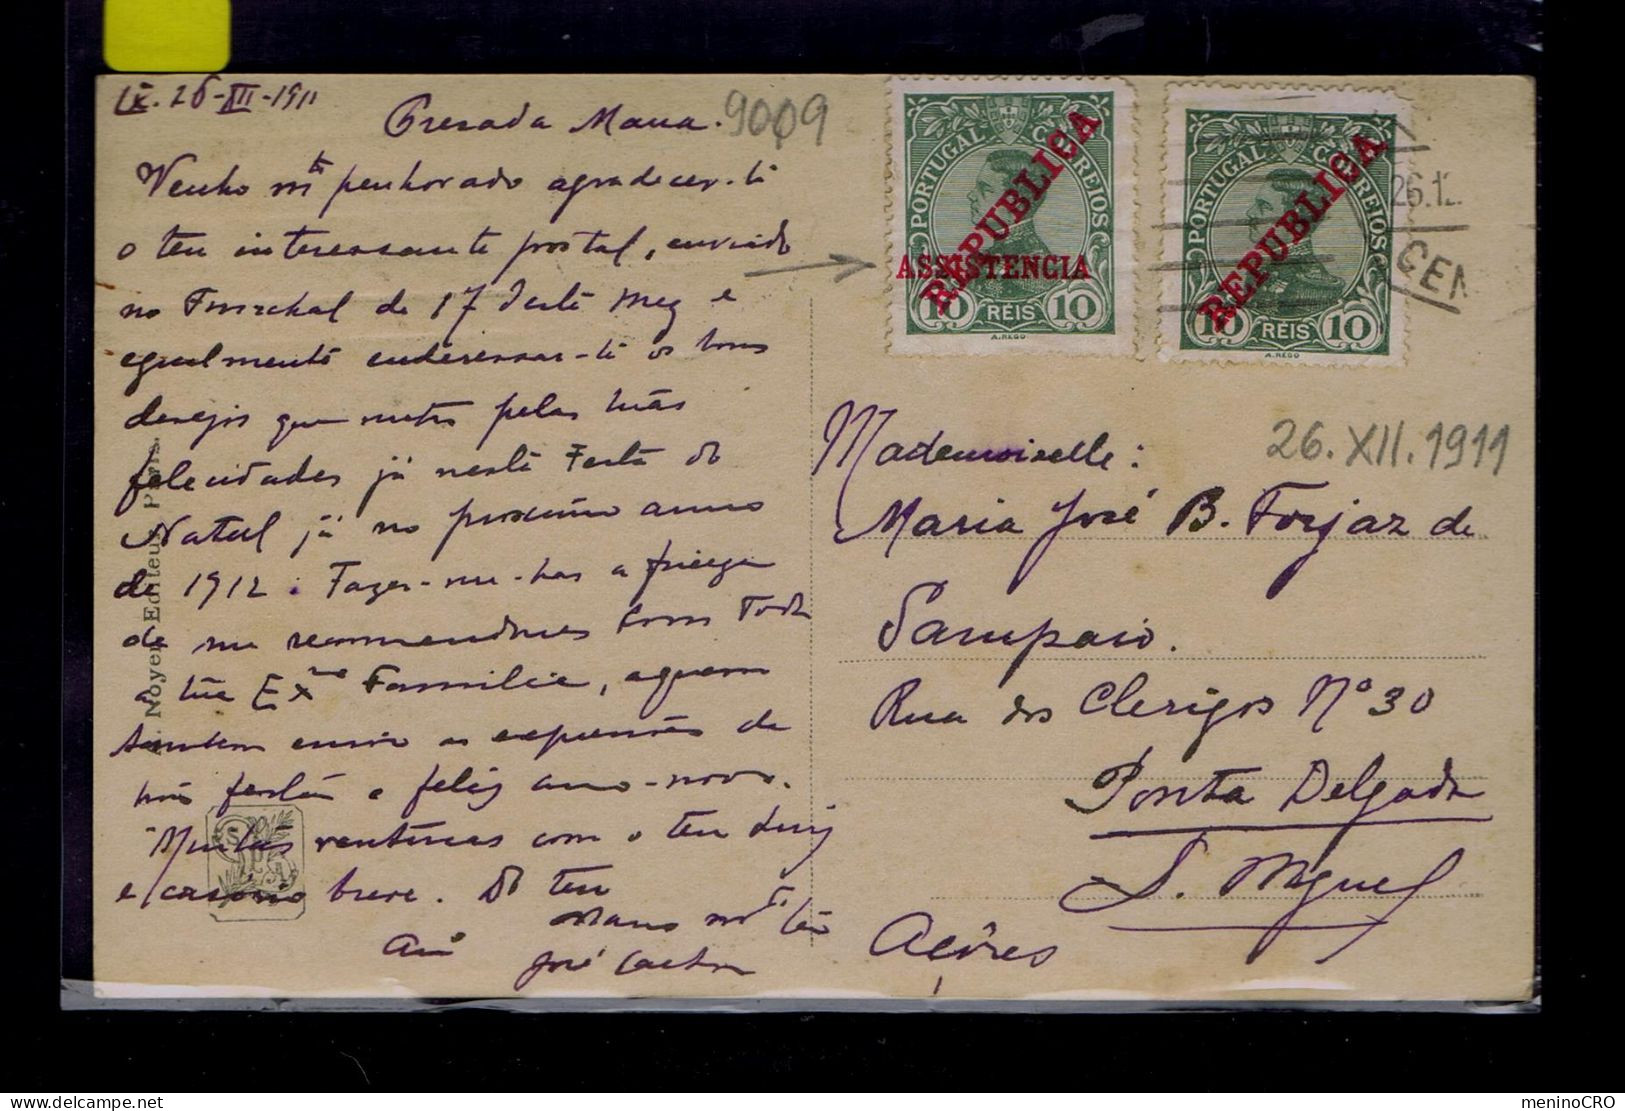 Lx. 26-XII-1911
Presada Maria. 9009
Venho mto penhorado agradecer-te
o teu interessante postal, enviado
no Funchal de 17 deste mez e
egualmente enderessar-te os bons
desejos que nutro pelas tuas
felicidades já nesta Festa do
Natal já no proximo anno
de 1912. Fazes-me-has a fineza
de me recommendares com toda
a tua Exma Familia, a quem
tambem envio as expressões de
boas festas e feliz anno-novo.
Muitas venturas com o teu Luiz
e casorio breve. Do teu
mano mto
José
A. Noyer, Editeur, Paris.
SPA
PORTUGAL CORREIOS
REPUBLICA
ASSISTENCIA
10 RÉIS 10
A. REGO
PORTUGAL CORREIOS
REPUBLICA
10 RÉIS 10
A. REGO
26.12.
CEN
26.XII.1911
Mademoiselle:
Maria José B. Forjaz de
Sampaio.
Rua dos Clerigos Nº 30
Ponta Delgada
S. Miguel
Açôres
meninoCRO